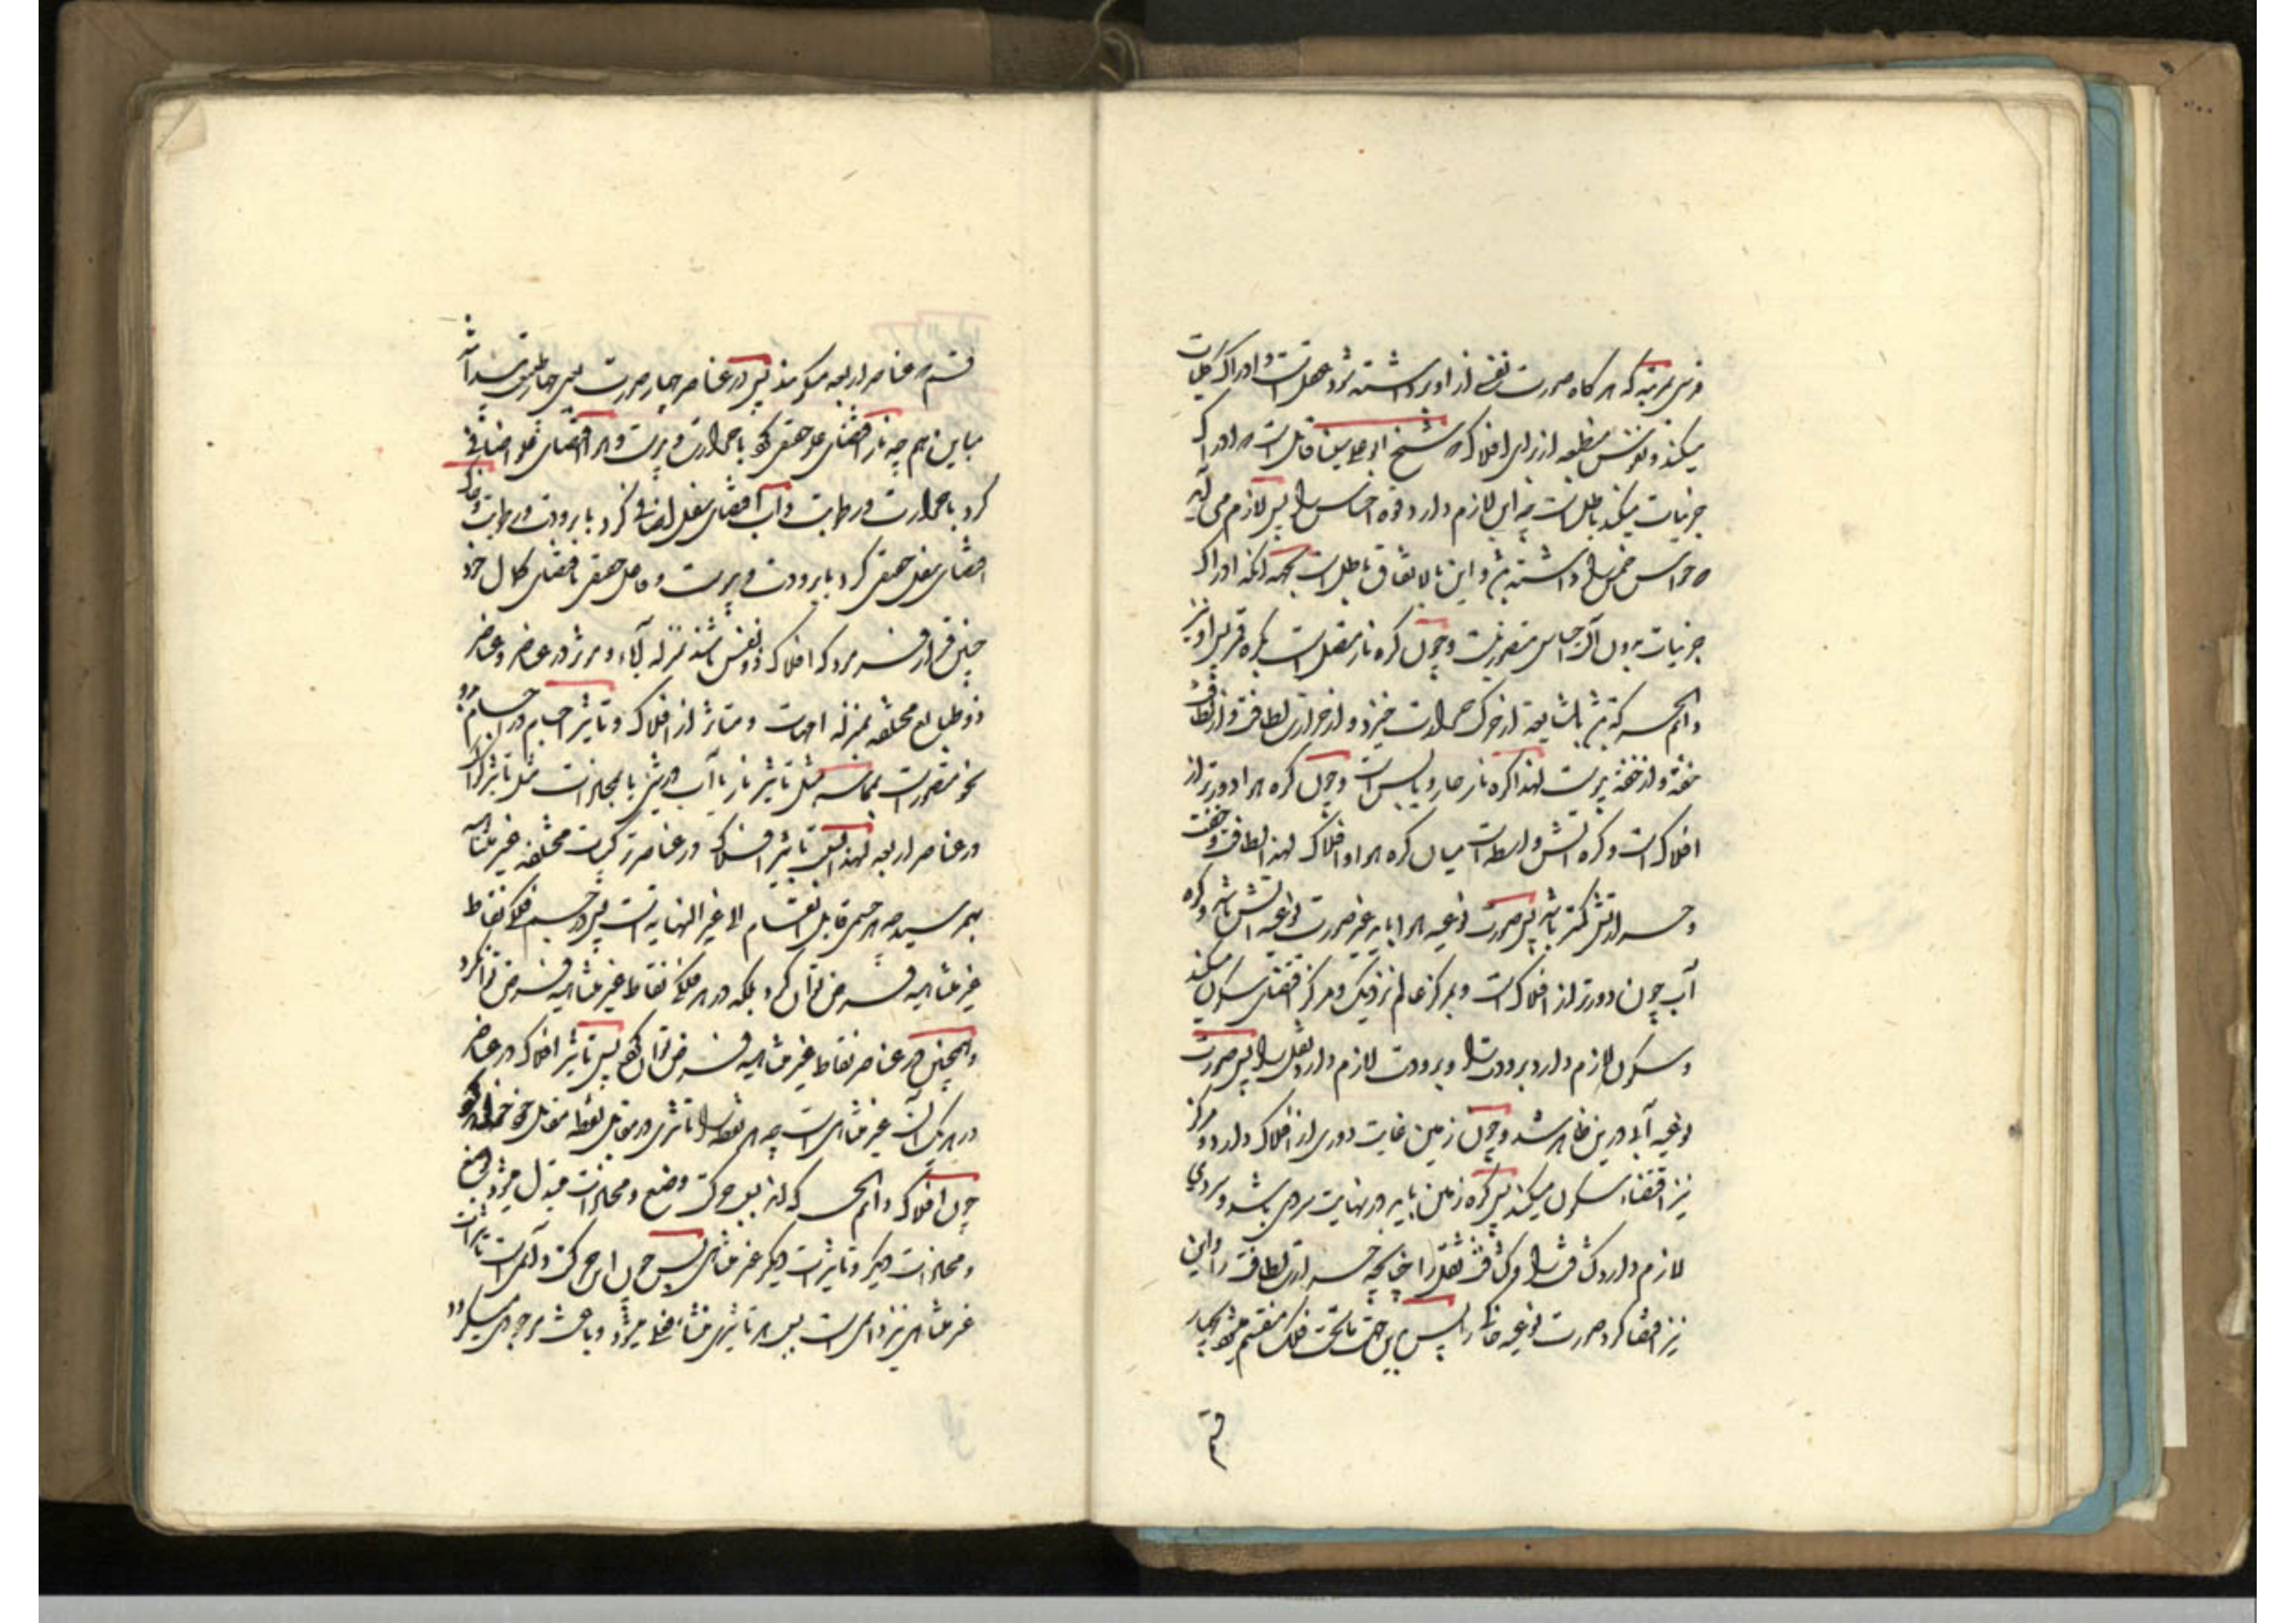 فرسی بمرتبه که هرگاه صورت نفسی از او برداشته شود عقل است و ادراک کلیات
میکند و نفوس منطبعه از برای افلاک که شیخ ابو علی سینا قائل است که ادراک
جزئیات میکند باطل است چه این لازم دارد قوه احساس را پس لازم می آید
که حواس خمس را داشته باشد و این بالاتفاق باطل است بجهه آنکه ادراک
جزئیات بدون آلت حساس متصور نیست و چون کره نار متصل است بکره قمر پس او نیز
دائم الحرکه باشد بالمشایعه از حرکت حرارت خیزد و از حرارت لطافت و از لطافت
خفة و از خفة یبوست لهذا کره نار حار و یابس است و چون کره هوا دورتر از
افلاک است و کره آتش واسطه است میان کره هوا و افلاک لهذا لطافت و خفت
و حرارتش کمتر باشد پس صورت نوعیه هوا باید غیر صورت نوعیه آتش باشد و کره
آب چون دورتر از افلاک است و بمرکز عالم نزدیک و مرکز اقتضای سکون میکند
و سکون لازم دارد برودت را و برودت لازم دارد ثقل را پس صورت
نوعیه آبی درین ظاهر شد و چون زمین غایت دوری از افلاک دارد و مرکز
نیز اقتضاء سکون میکند پس کره زمین باید در نهایت سردی باشد و سردی
لازم دارد کثافت را و کثافت ثقل را چنانچه حرارت لطافت را و این
نیز اقتضا کرد صورت نوعیه خاک را پس باین جهت ماتحت فلک منقسم میشود بچهار
قسم
قسم که عناصر اربعه میگویند پس در عناصر چهار صورت یعنی چهار طبیعت پیدا شد
مباین هم چه نار اقتضای علو حقیقی کرد با حرارت و یبوست و هوا اقتضای علو اضافی
کرد با حرارت و رطوبت و آب اقتضای سفل اضافی کرد با برودت و رطوبت و خاک
اقتضای سفل حقیقی کرد با برودت و یبوست و فاعل حقیقی باقتضای کمال خود
چنین قرار فرمود که افلاک ذو نفس باشند بمنزله آباء و موثر در عناصر و عناصر
ذو طبایع مختلفه بمنزله امهات و متاثر از افلاک و تاثیر اجسام در اجسام بدو
نحو متصور است بمماسه مثل تاثیر نار با آب و یا بمحاذات مثل تاثیر افلاک
در عناصر اربعه لهذا از تاثیر افلاک در عناصر ترکیبات مختلفه غیر متناهیه
بهم رسید چه هر جسمی قابل انقسام الا غیر النهایه است پس در جسم فلکی نقاط
غیر متناهیه فرض توان کرد بلکه در هر فلکی نقاط غیر متناهیه فرض توان کرد
و همچنین در عناصر نقاط غیر متناهیه فرض توان کرد پس تاثیر افلاک در عناصر
در هر یک آن غیر متناهی است چه هر نقطه را تاثیری در مقابل نقطه مقابل خود
چون افلاک دائم الحرکه اند پس بحرکت وضع و محاذات مبدل میشود بوضع
و محاذات دیگر و تاثیرات دیگر غیر متناهی پس چون این حرکت دائمی است تاثیرات
غیر متناهی نیز دائمی است پس هر تاثیری منشاء فعلی میشود و باعث موجودی میگردد